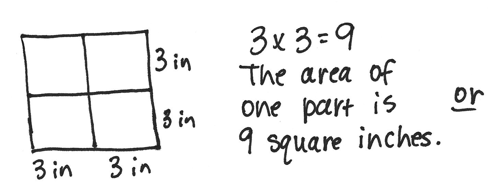 3 in
3 in
3 in 3 in
3 x 3 = 9
The area of
one part is
9 square inches.
or